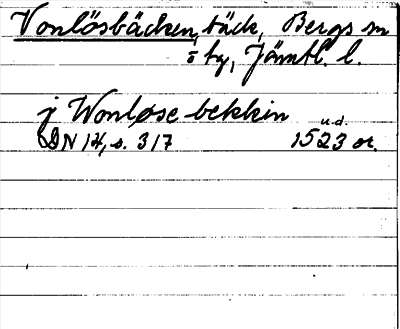 Vonlösbäcken, bäck, Bergs sn
o tg, Jämtl. l.
j Wonløse bekkin
u.d.
DN 14, s. 317 1523 or.